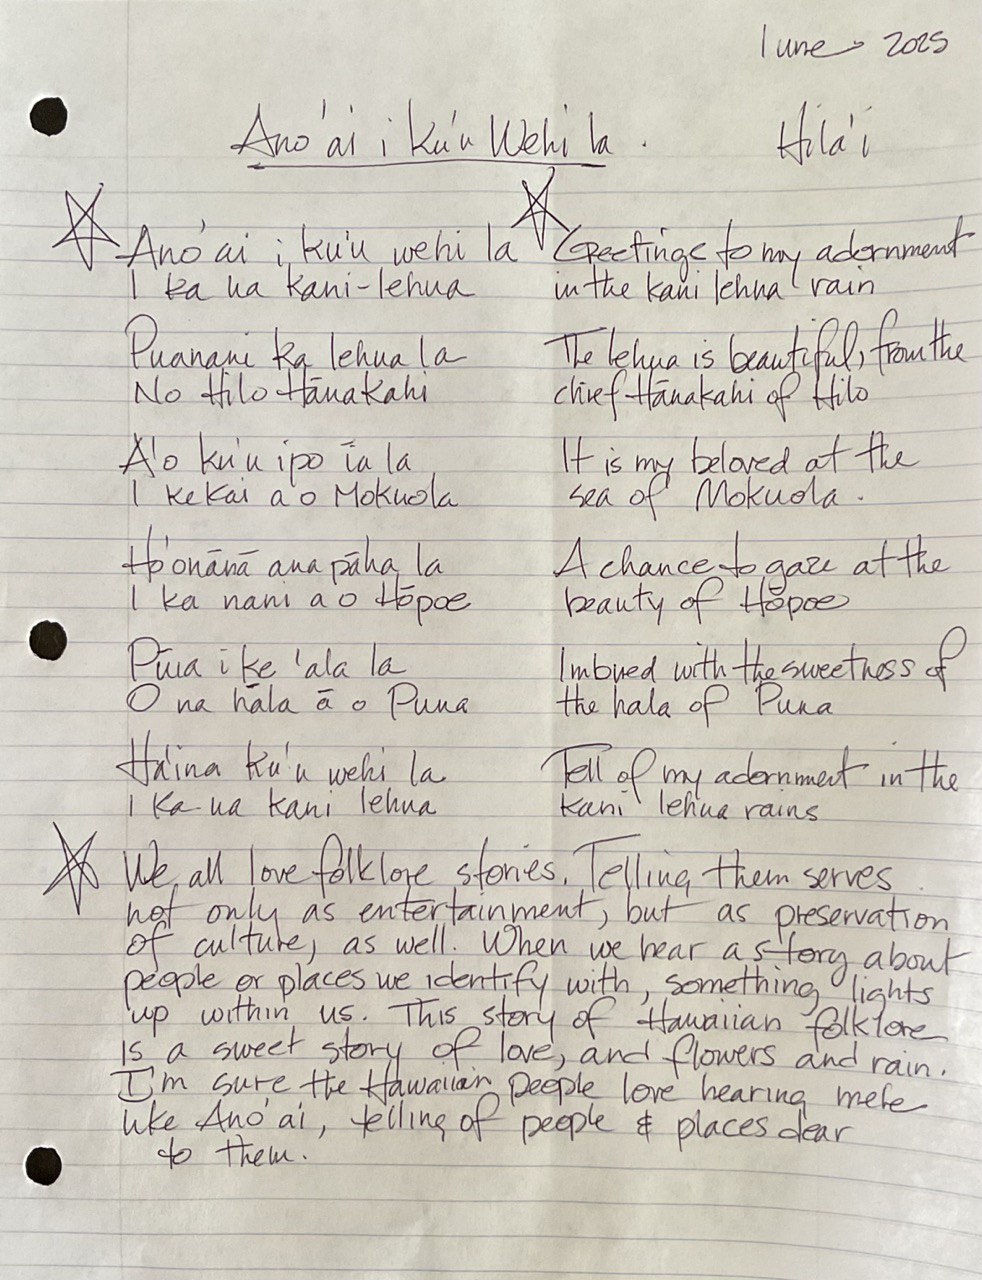 1 une 2025
Ano'ai i ku'u Wehi la. Hila'i
Ano'ai i ku'u wehi la
I ka ua kani-lehua
Puanani ka lehua la
No Hilo Hānakahi
A'o ku'u ipo īa la
I ke kai a'o Mokuola
Ho'onānā ana pāha la
I ka nani a o Hōpoe
Pūia i ke 'ala la
O na hāla ā o Puna
Ha'ina ku'u wehi la
I ka ua kani lehua
Greetings to my adornment
in the kani lehua rain
The lehua is beautiful, from the
chief Hānakahi of Hilo
It is my beloved at the
sea of Mokuola.
A chance to gaze at the
beauty of Hōpoe
Imbued with the sweetness of
the hala of Puna
Tell of my adornment in the
kani lehua rains
We all love folklore stories. Telling them serves
not only as entertainment, but as preservation
of culture, as well. When we hear a story about
people or places we identify with, something lights
up within us. This story of Hawaiian folklore
is a sweet story of love, and flowers and rain.
I'm sure the Hawaiian people love hearing mele
like Ano'ai, telling of people & places dear
to them.